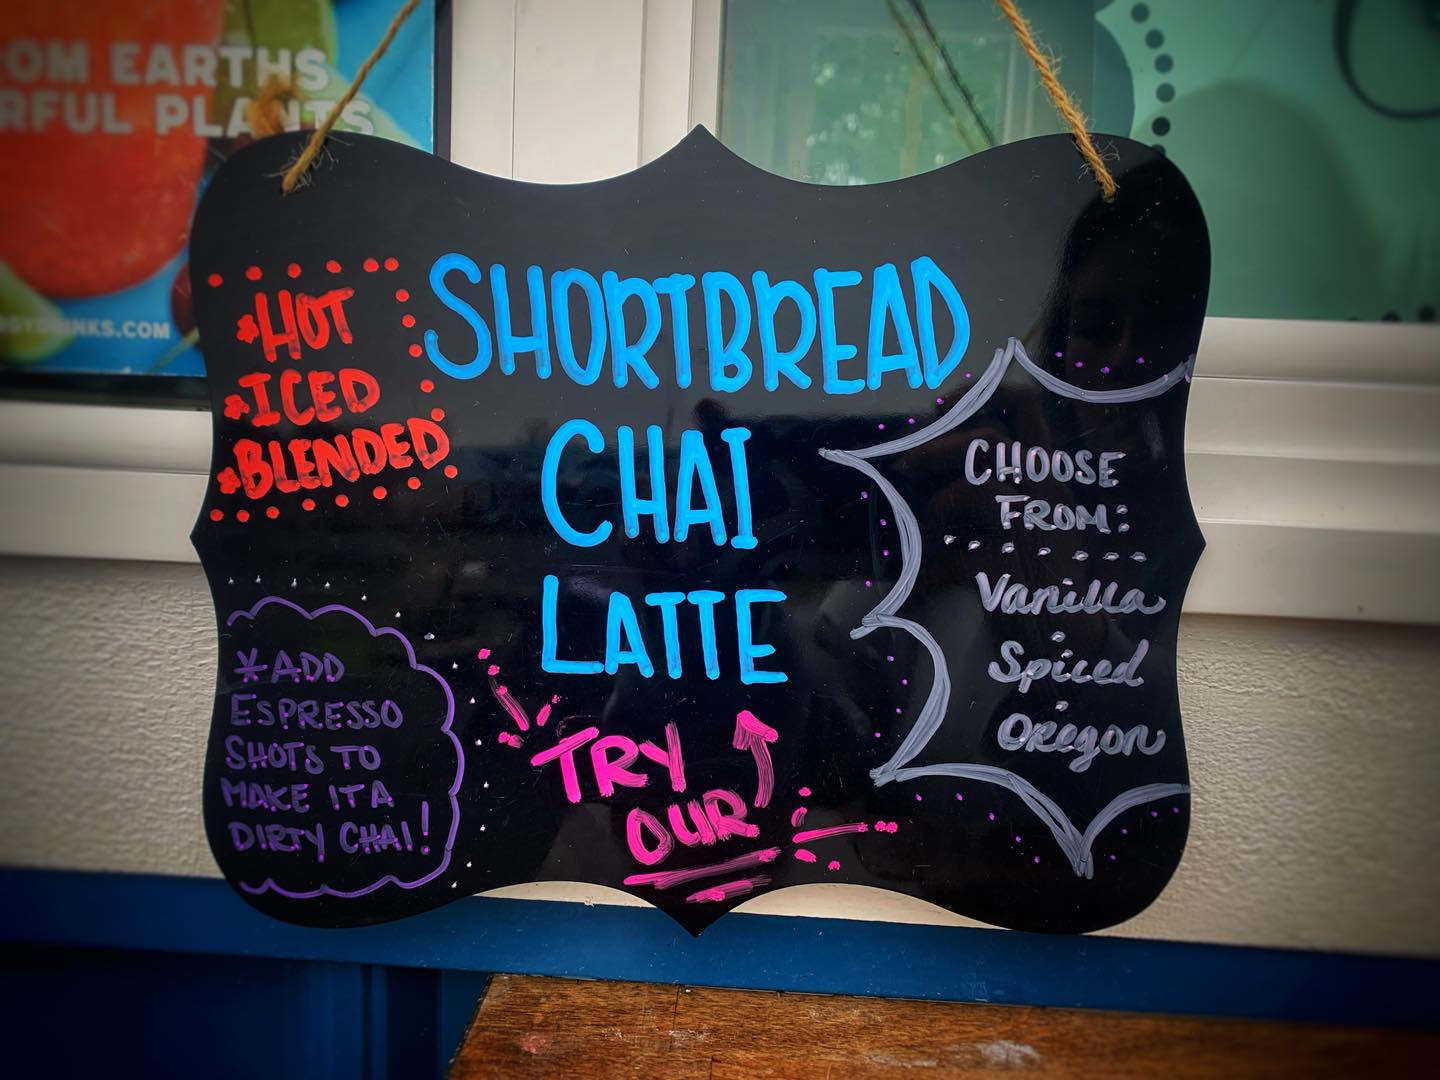 OM EARTHS
RFUL PLANTS
NKS.COM
*HOT
*ICED
*BLENDED
SHORTBREAD
CHAI
LATTE
CHOOSE
FROM:
Vanilla
Spiced
Oregon
*ADD
ESPRESSO
SHOTS TO
MAKE IT A
DIRTY CHAI!
TRY
OUR